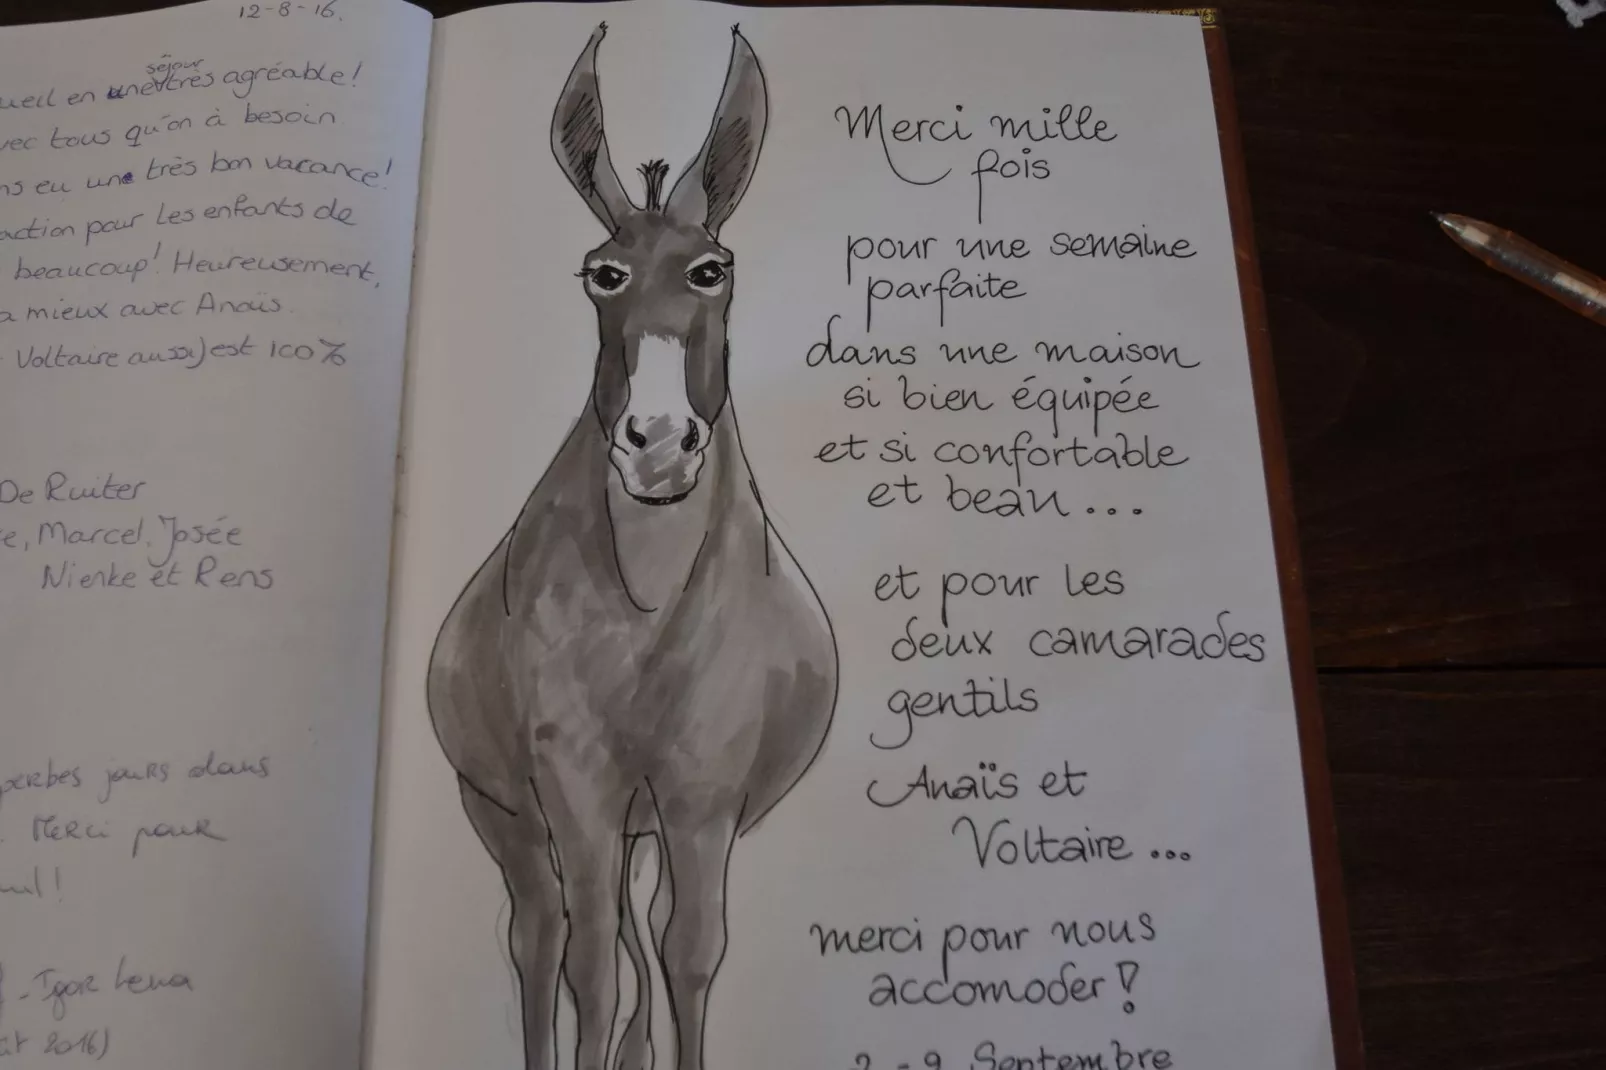 12-8-16.
séjour
en une très agréable!
tous qu'on à besoin
eu une très bon vacance!
pour les enfants de
beaucoup! Heureusement,
mieux avec Anaïs.
Voltaire aussi) est 100%
De Ruiter
Marcel, Josée
Nienke et Rens
jours dans
Merci pour
Igor Lena
2016)
Merci mille
fois
pour une semaine
parfaite
dans une maison
si bien équipée
et si confortable
et beau...
et pour les
deux camarades
gentils
Anaïs et
Voltaire...
merci pour nous
accomoder!
2-9 Septembre